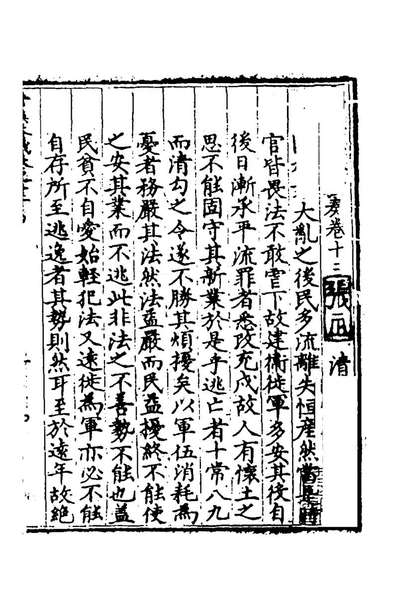 大亂之後民多流離失恒産然當是時
官皆畏法不敢虐下故建衛徙軍多安其後自
後日漸承平流罪者悉改充戍故人有懷土之
思不能固守其新業於是乎逃亡者十常八九
而清勾之令遂不勝其煩擾矣以軍伍消耗爲
憂者務嚴其法然法益嚴而民益擾終不能使
之安其業而不逃此非法之不善勢不能也蓋
民貧不自愛始輕犯法又遠徙爲軍亦必不能
自存所至逃逸者其勢則然耳至於遠年故絶